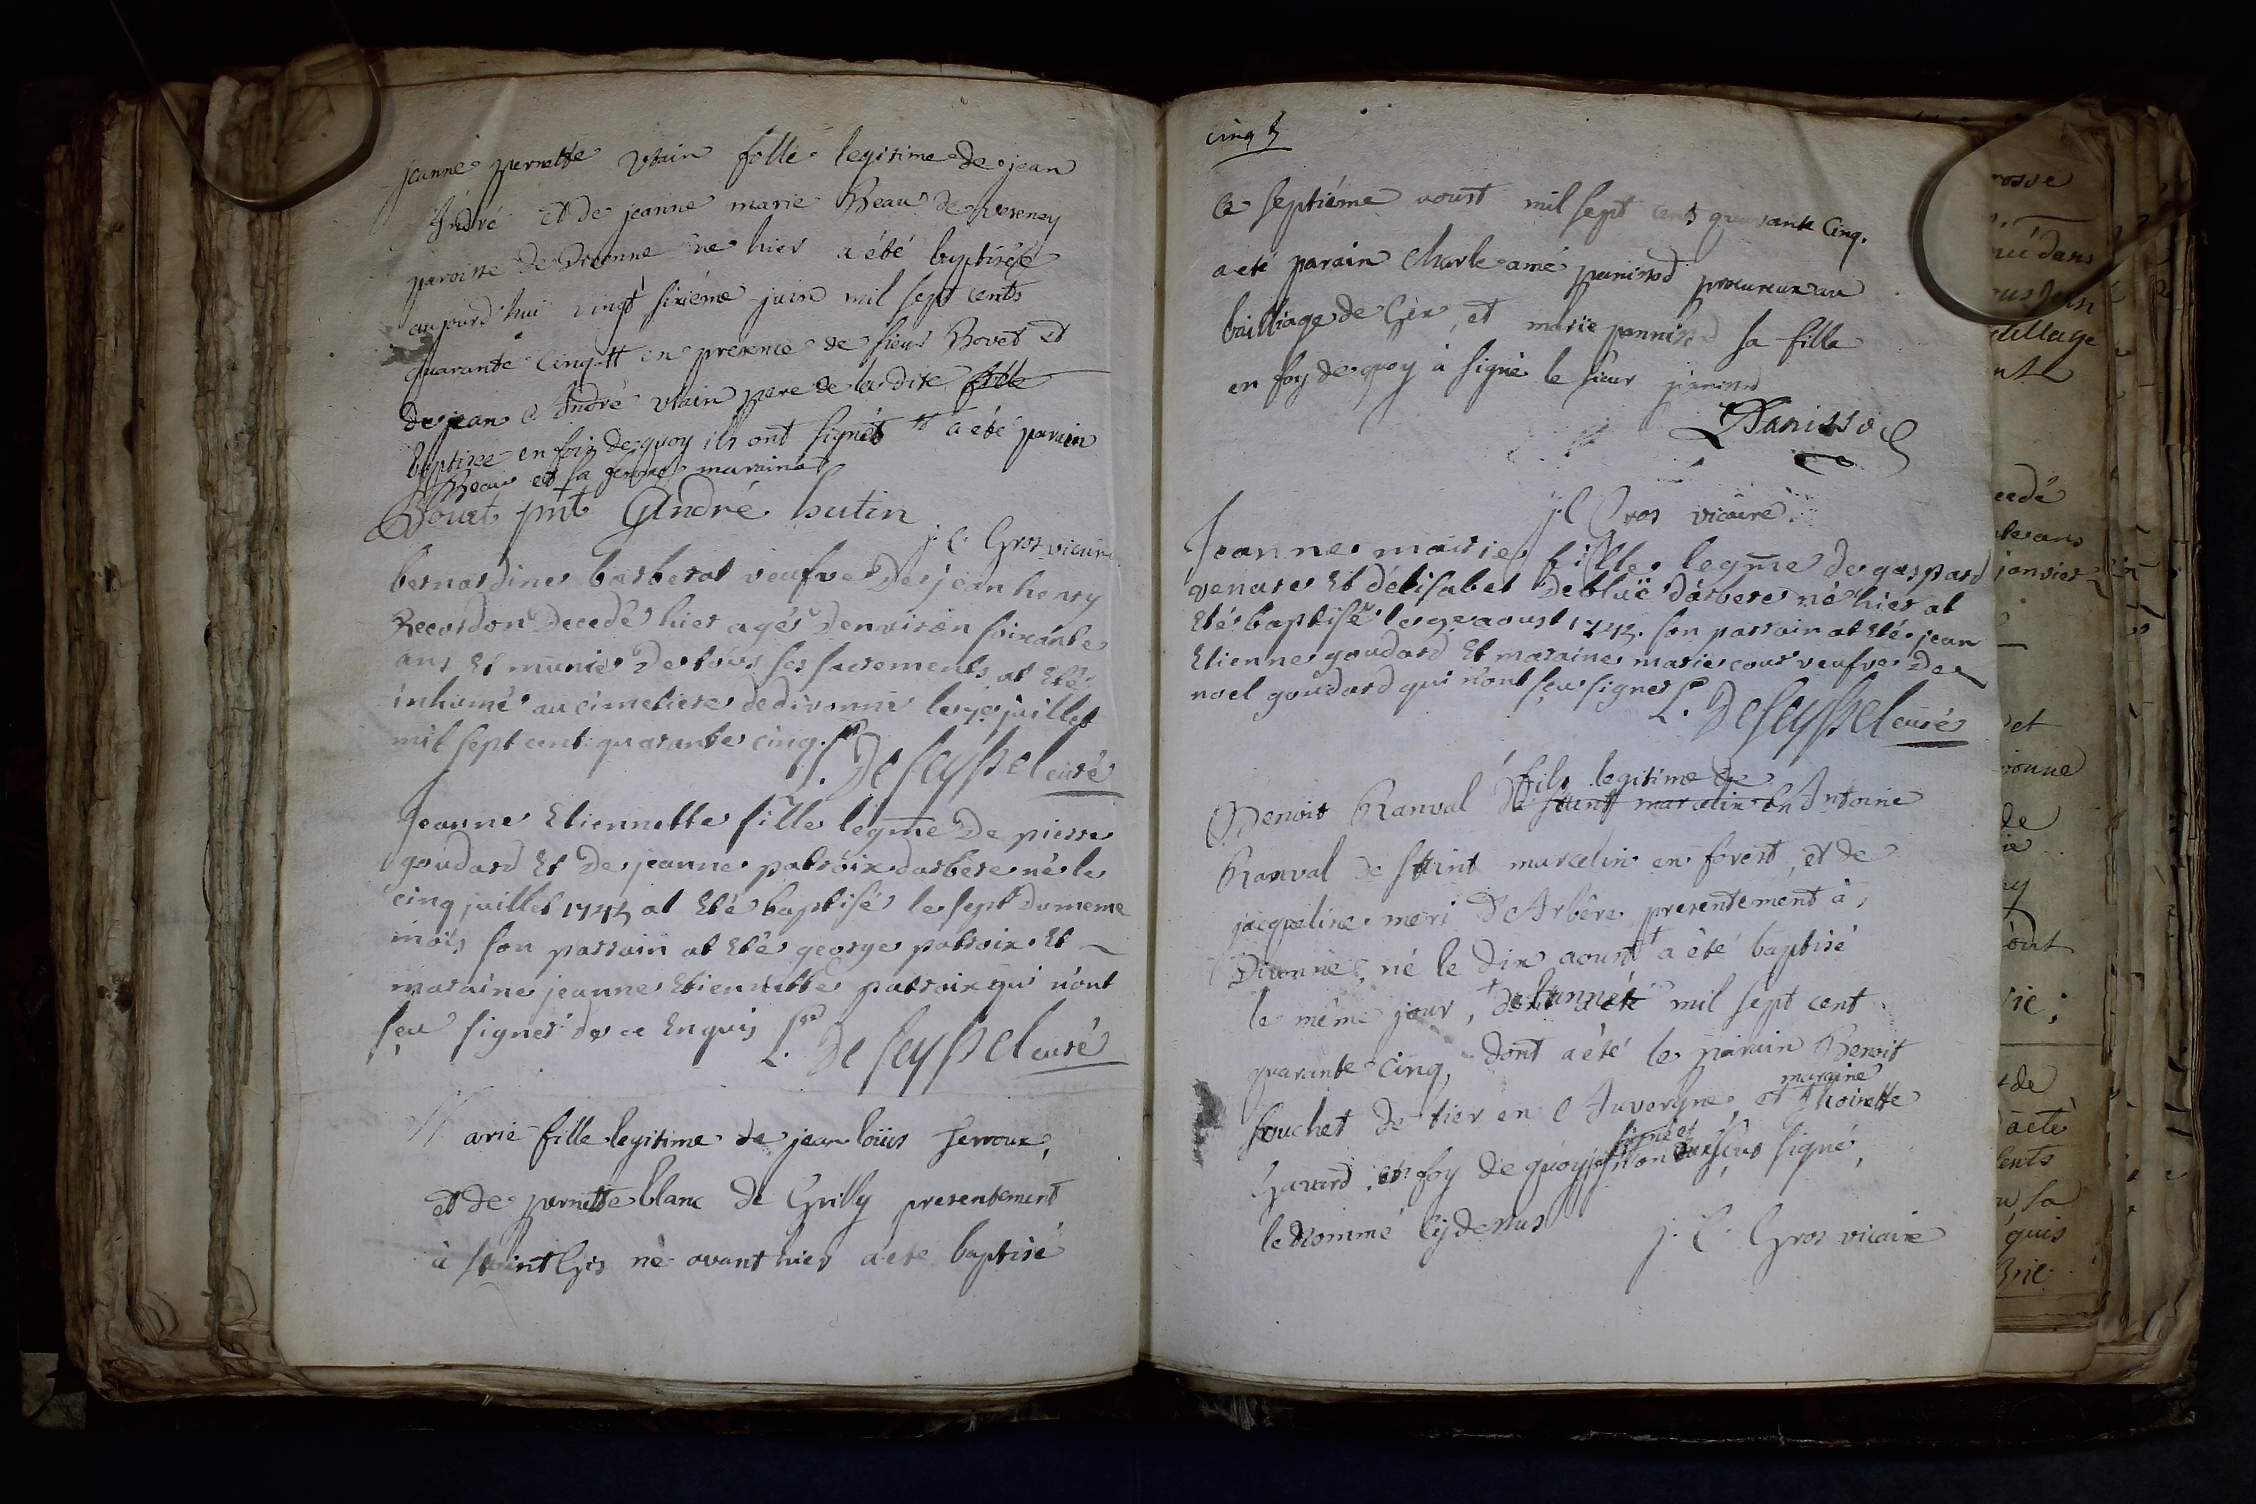 jeanne pernette utain fille legitime de jean
André et de jeanne marie Beau de veseney
paroisse de Divonne née hier a été baptisée
aujourd'hui vingt sixiéme juin mil sept cents
quarante cinq en presence de sieur Bovet et
de jean André utain pere de la dite fille
baptisee en foi de quoy ils ont signés a été parain
Beau et sa femme maraine
Bouet pnt André hutin
j. C. Gros vicaire
bernardine barberat veufve de jean henry
Recordon Decedé hier agés denviron soixante
ans Et munie De tous ses sacrements at Eté
inhumé au cimetiere de divonne le 7e juillet
mil sept cent quarante cinq.
L. De seyssel curé
Jeanne Etiennette fille legme De pierre
goudard Et De jeanne patroix darbere né le
cinq juillet 1745 at Eté baptisé le sept du meme
mois son parrain at Eté george patroix Et
maraine jeanne Etiennette patroix qui n'ont
sçu signer de ce Enquis L. De seyssel curé
Marie fille legitime de jean loüis Serroux,
et de pernette blanc de Grilly presentement
à saint Gis né avant hier a ete baptisé
cinq
Ce septiéme aoust mil sept cents quarante Cinq.
a eté parain Charle amé panissod procureur au
bailliage de Gex, et marie pannissod sa fille
en foy de quoy à signé le sieur panissod
Panissod
j. C. Gros vicaire
Jeanne marie fille legme de gaspard
venare Et délisabet Debluë dárbere né hier at
Eté baptisé le 9e aoust 1745. son parrain at Eté jean
Etienne goudard Et maraine marie cour veufve De
noel goudard qui n'ont sçu signer
L. De seyssel curé
fils legitime de
Benoit Ranval de saint marcelin en Antoine
Ranval de saint marcelin en forest, et de
jacqueline meri d'Arbêre presentement à
Divonne, né le dix aoust a été baptisé
le même jour, de l'année mil sept cent
quarante cinq, dont a été le parain Benoit
maraine
souchet de tier en Auvergne, et thoinette
Gavard, en foy de quoy signé
le nommé cy dessus j. C. Gros vicaire